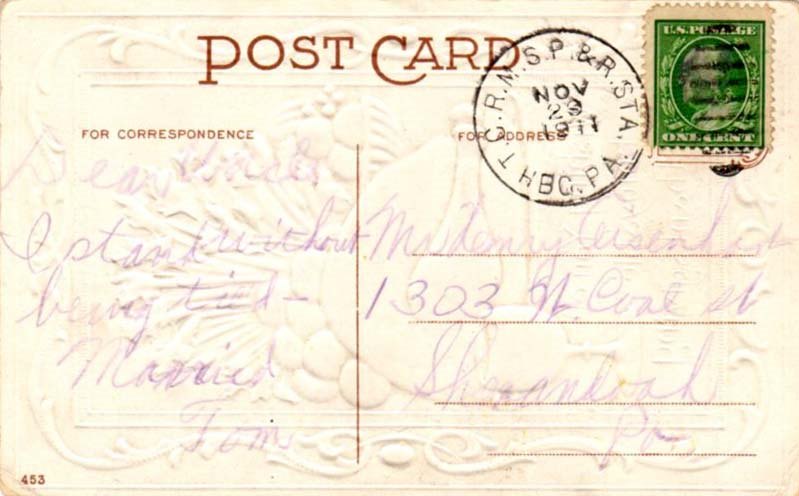 POST CARD
T.C.R.M.S.P.&R.STA.
HBG.PA.
NOV
29
1911
U.S.POSTAGE
ONE CENT
FOR CORRESPONDENCE
FOR ADDRESS
Dear Uncle
I stand without
being tied -
Married
Tom
Mr Henry Eisenhart
1303 W. Coal st
Shenandoah
Pa
453